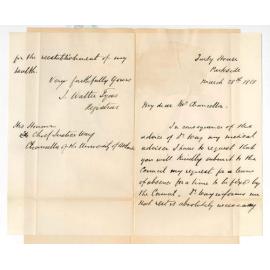 Tudy House
Parkside
March 28th 1881
My dear Mr Chancellor
In consequence of the
advice of Dr Way my medical
adviser I have to request that
you will kindly submit to the
Council my request for a leave
of absence for a time to be fixed by
the Council. Dr Way informs me
that rest is absolutely necessary
for the reestablishment of my
health.
Very faithfully Yours
J. Walter Tyas
Registrar
His Honour
The Chief Justice Way
Chancellor of the University of